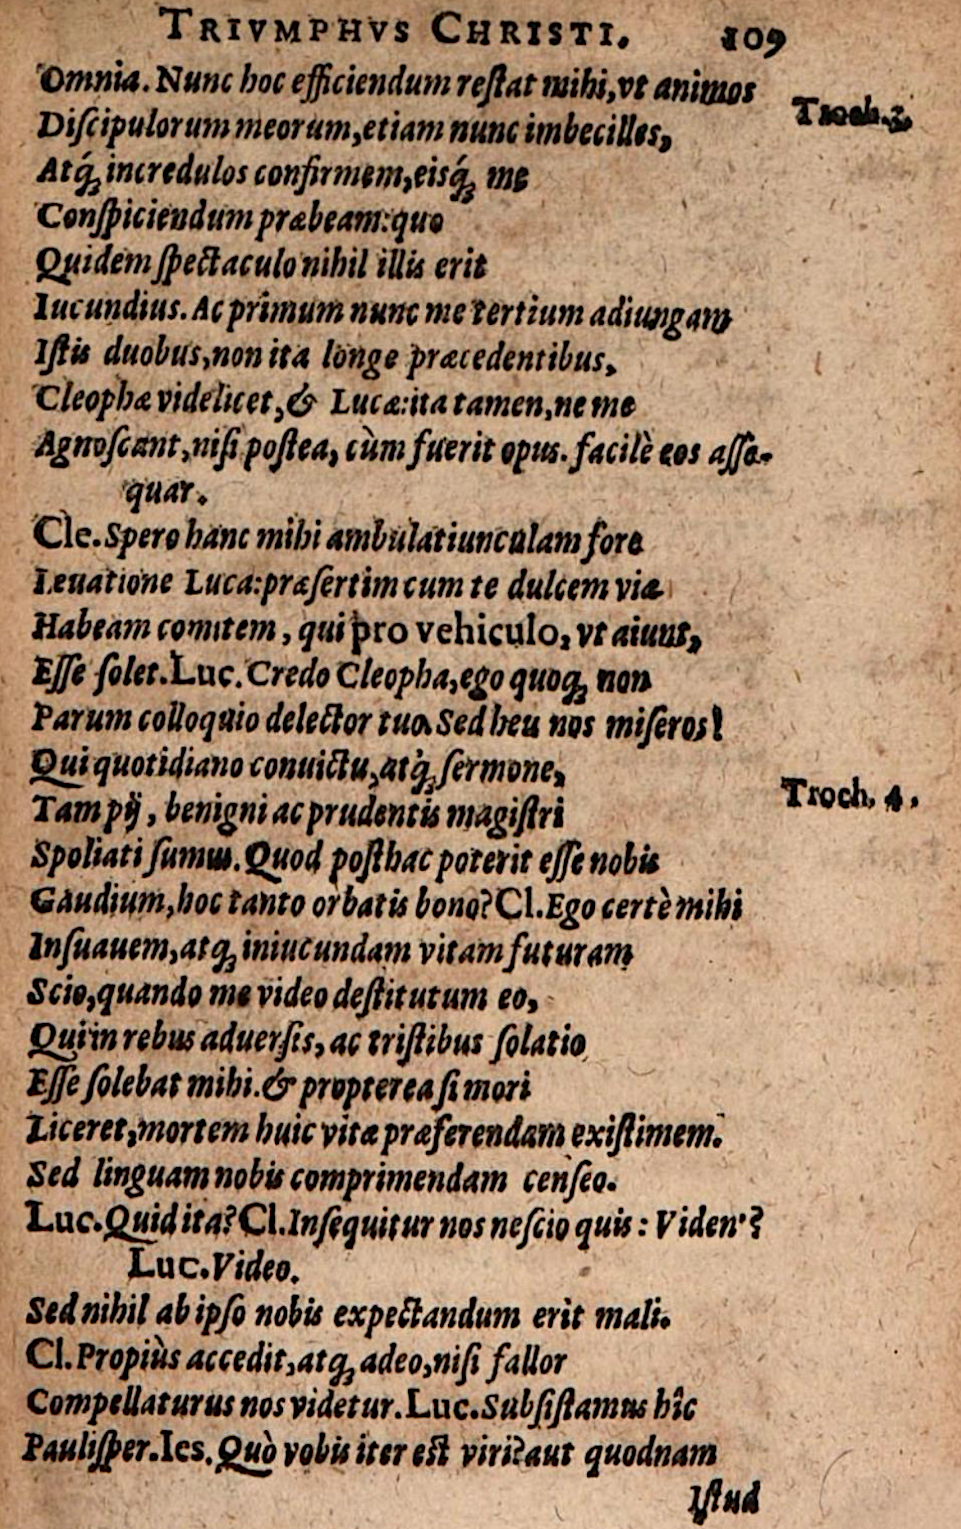 TRIVMPHVS CHRISTI. 109
Omnia. Nunc hoc efficiendum reſtat mihi, vt animos
Troch. 3.
Diſcipulorum meorum, etiam nunc imbecilles,
Atq́ꝫ incredulos confirmem, eisq́ꝫ me
Conſpiciendum præbeam: quo
Quidem ſpectaculo nihil illis erit
Iucundius. Ac primum nunc me tertium adiungam
Iſtis duobus, non ita longe præcedentibus,
Cleophæ videlicet, & Lucæ: ita tamen, ne me
Agnoſcant, niſi poſtea, cùm fuerit opus. facilè eos aſſe-
quar.
Cle. Spero hanc mihi ambulatiunculam fore
Leuatione Luca: præſertim cum te dulcem viæ
Habeam comitem, qui pro vehiculo, vt aiunt,
Eſſe ſolet. Luc. Credo Cleopha, ego quoqꝫ non
Parum colloquio delector tuo. Sed heu nos miſeros!
Qui quotidiano conuictu, atq́ꝫ ſermone,
Troch. 4.
Tam pij, benigni ac prudentis magiſtri
Spoliati ſumus. Quod poſthac poterit eſſe nobis
Gaudium, hoc tanto orbatis bono? Cl. Ego certè mihi
Inſuauem, atqꝫ iniucundam vitam futuram
Scio, quando me video deſtitutum eo,
Qui in rebus aduerſis, ac triſtibus ſolatio
Eſſe ſolebat mihi. & propterea ſi mori
Liceret, mortem huic vitæ præferendam exiſtimem.
Sed linguam nobis comprimendam cenſeo.
Luc. Quid ita? Cl. Inſequitur nos neſcio quis: Viden'?
Luc. Video.
Sed nihil ab ipſo nobis expectandum erit mali.
Cl. Propiùs accedit, atqꝫ adeo, niſi fallor
Compellaturus nos videtur. Luc. Subſiſtamus hîc
Pauliſper. Ies. Quò vobis iter eſt viri? aut quodnam
Iſtud